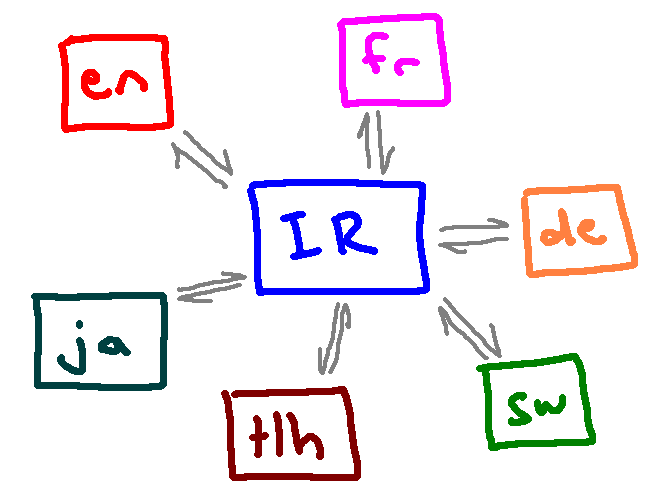 en
fr
IR
de
ja
tlh
sw